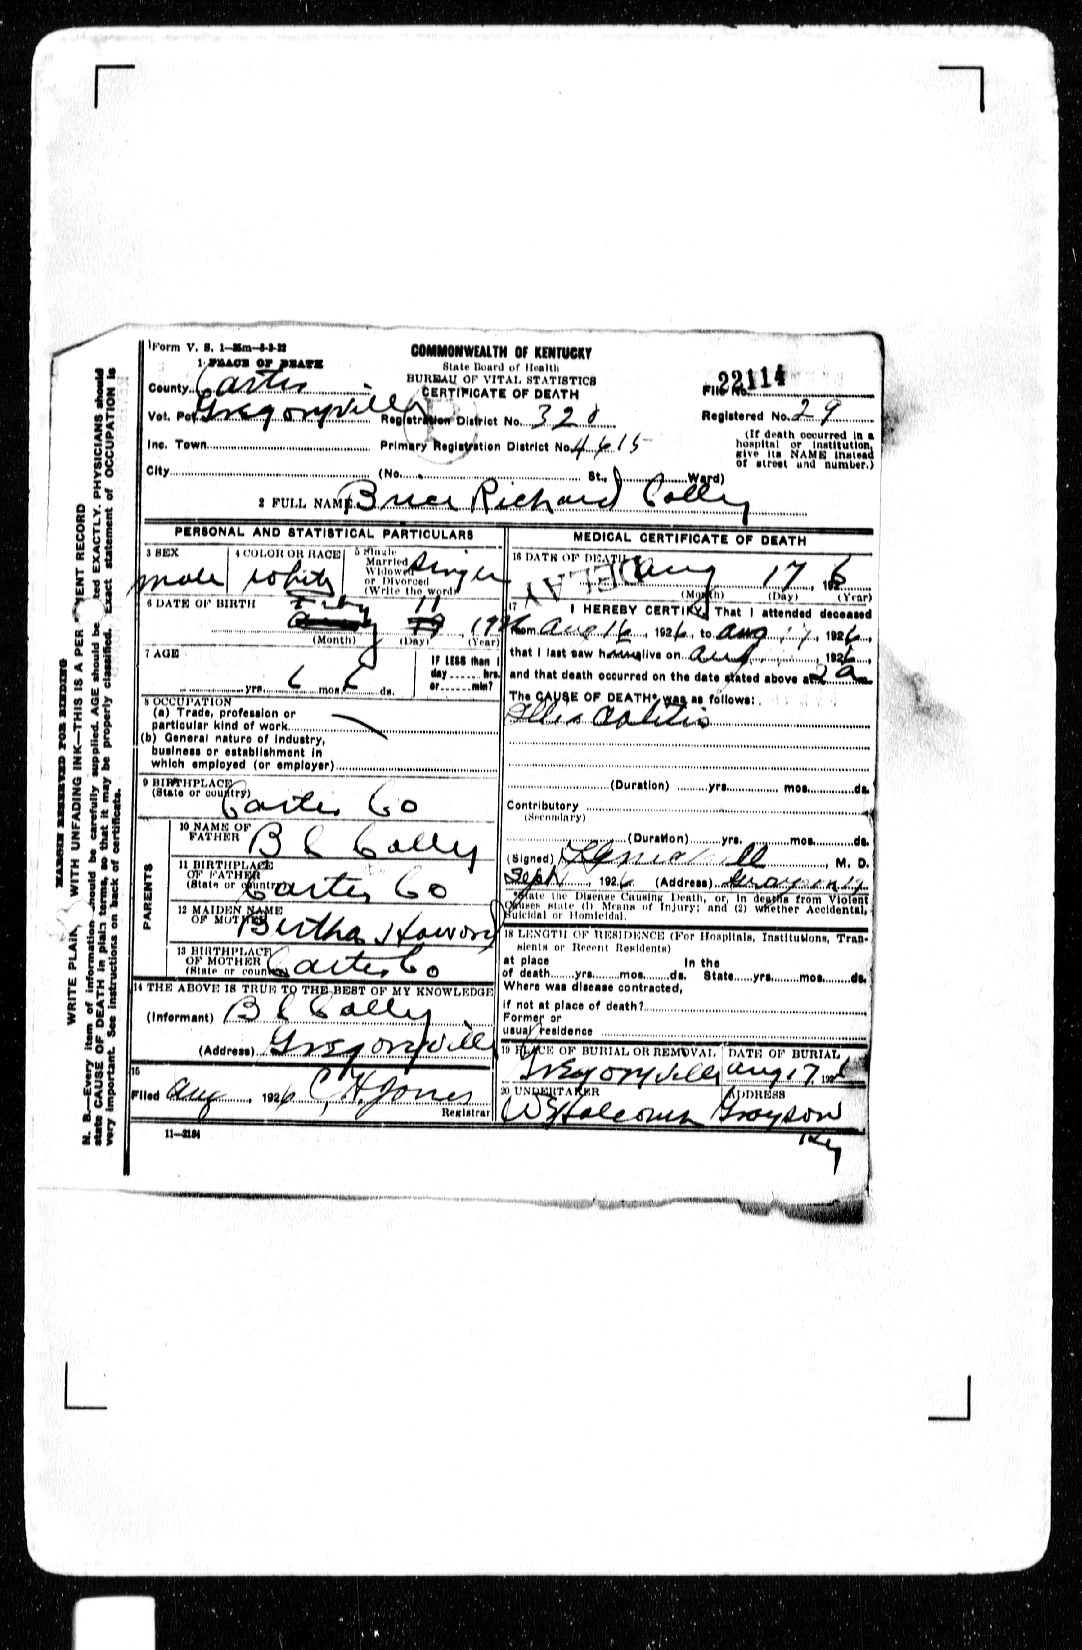 Form V. S. 1—25m—8-2-22
COMMONWEALTH OF KENTUCKY
State Board of Health
BUREAU OF VITAL STATISTICS
CERTIFICATE OF DEATH
1 PLACE OF DEATH
County Carter
Vot. Pct. Gregoryville
Inc. Town
City
File No. 22114
Registration District No. 328
Registered No. 29
Primary Registration District No. 4615
(If death occurred in a
hospital or institution,
give its NAME instead
of street and number.)
(No. St., Ward)
2 FULL NAME Richard Colley
PERSONAL AND STATISTICAL PARTICULARS
3 SEX male
4 COLOR OR RACE White
5 Single
Married
Widowed
or Divorced
(Write the word) Single
6 DATE OF BIRTH
Feby 11
(Month) (Day) (Year)
1926
7 AGE
yrs. 6 mos. 6 ds.
IF LESS than 1
day hrs.
or min?
8 OCCUPATION
(a) Trade, profession or
particular kind of work
(b) General nature of industry,
business or establishment in
which employed (or employer)
9 BIRTHPLACE
(State or country) Carter Co
PARENTS
10 NAME OF
FATHER B C Colley
11 BIRTHPLACE
OF FATHER
(State or country) Carter Co
12 MAIDEN NAME
OF MOTHER Bertha Howard
13 BIRTHPLACE
OF MOTHER
(State or country) Carter Co
14 THE ABOVE IS TRUE TO THE BEST OF MY KNOWLEDGE
(Informant) B C Colley
(Address) Gregoryville
15
Filed Aug, 1926 C, H. Jones
Registrar
11—3184
MEDICAL CERTIFICATE OF DEATH
16 DATE OF DEATH Aug 17 1926
(Month) (Day) (Year)
DELAY
17
I HEREBY CERTIFY, That I attended deceased
from Aug 16, 1926, to Aug 17, 1926,
that I last saw h alive on Aug, 1926,
and that death occurred on the date stated above at 2 a m
The CAUSE OF DEATH* was as follows:
Illio Colitis
(Duration) yrs. mos. ds.
Contributory
(Secondary)
(Duration) yrs. mos. ds.
(Signed), M. D.
Sept, 1926 (Address) Grayson Ky
*State the Disease Causing Death, or, in deaths from Violent
Causes state (1) Means of Injury; and (2) whether Accidental,
Suicidal or Homicidal.
18 LENGTH OF RESIDENCE (For Hospitals, Institutions, Tran-
sients or Recent Residents)
at place In the
of death yrs. mos. ds. State yrs. mos. ds.
Where was disease contracted,
if not at place of death?
Former or
usual residence
19 PLACE OF BURIAL OR REMOVAL DATE OF BURIAL
Gregoryville Aug 17 1926
20 UNDERTAKER ADDRESS
Grayson
Ky
MARGIN RESERVED FOR BINDING
WRITE PLAINLY WITH UNFADING INK—THIS IS A PERMANENT RECORD
N. B.—Every item of information should be carefully supplied. AGE should be stated EXACTLY. PHYSICIANS should
state CAUSE OF DEATH in plain terms, so that it may be properly classified. Exact statement of OCCUPATION is
very important. See instructions on back of certificate.